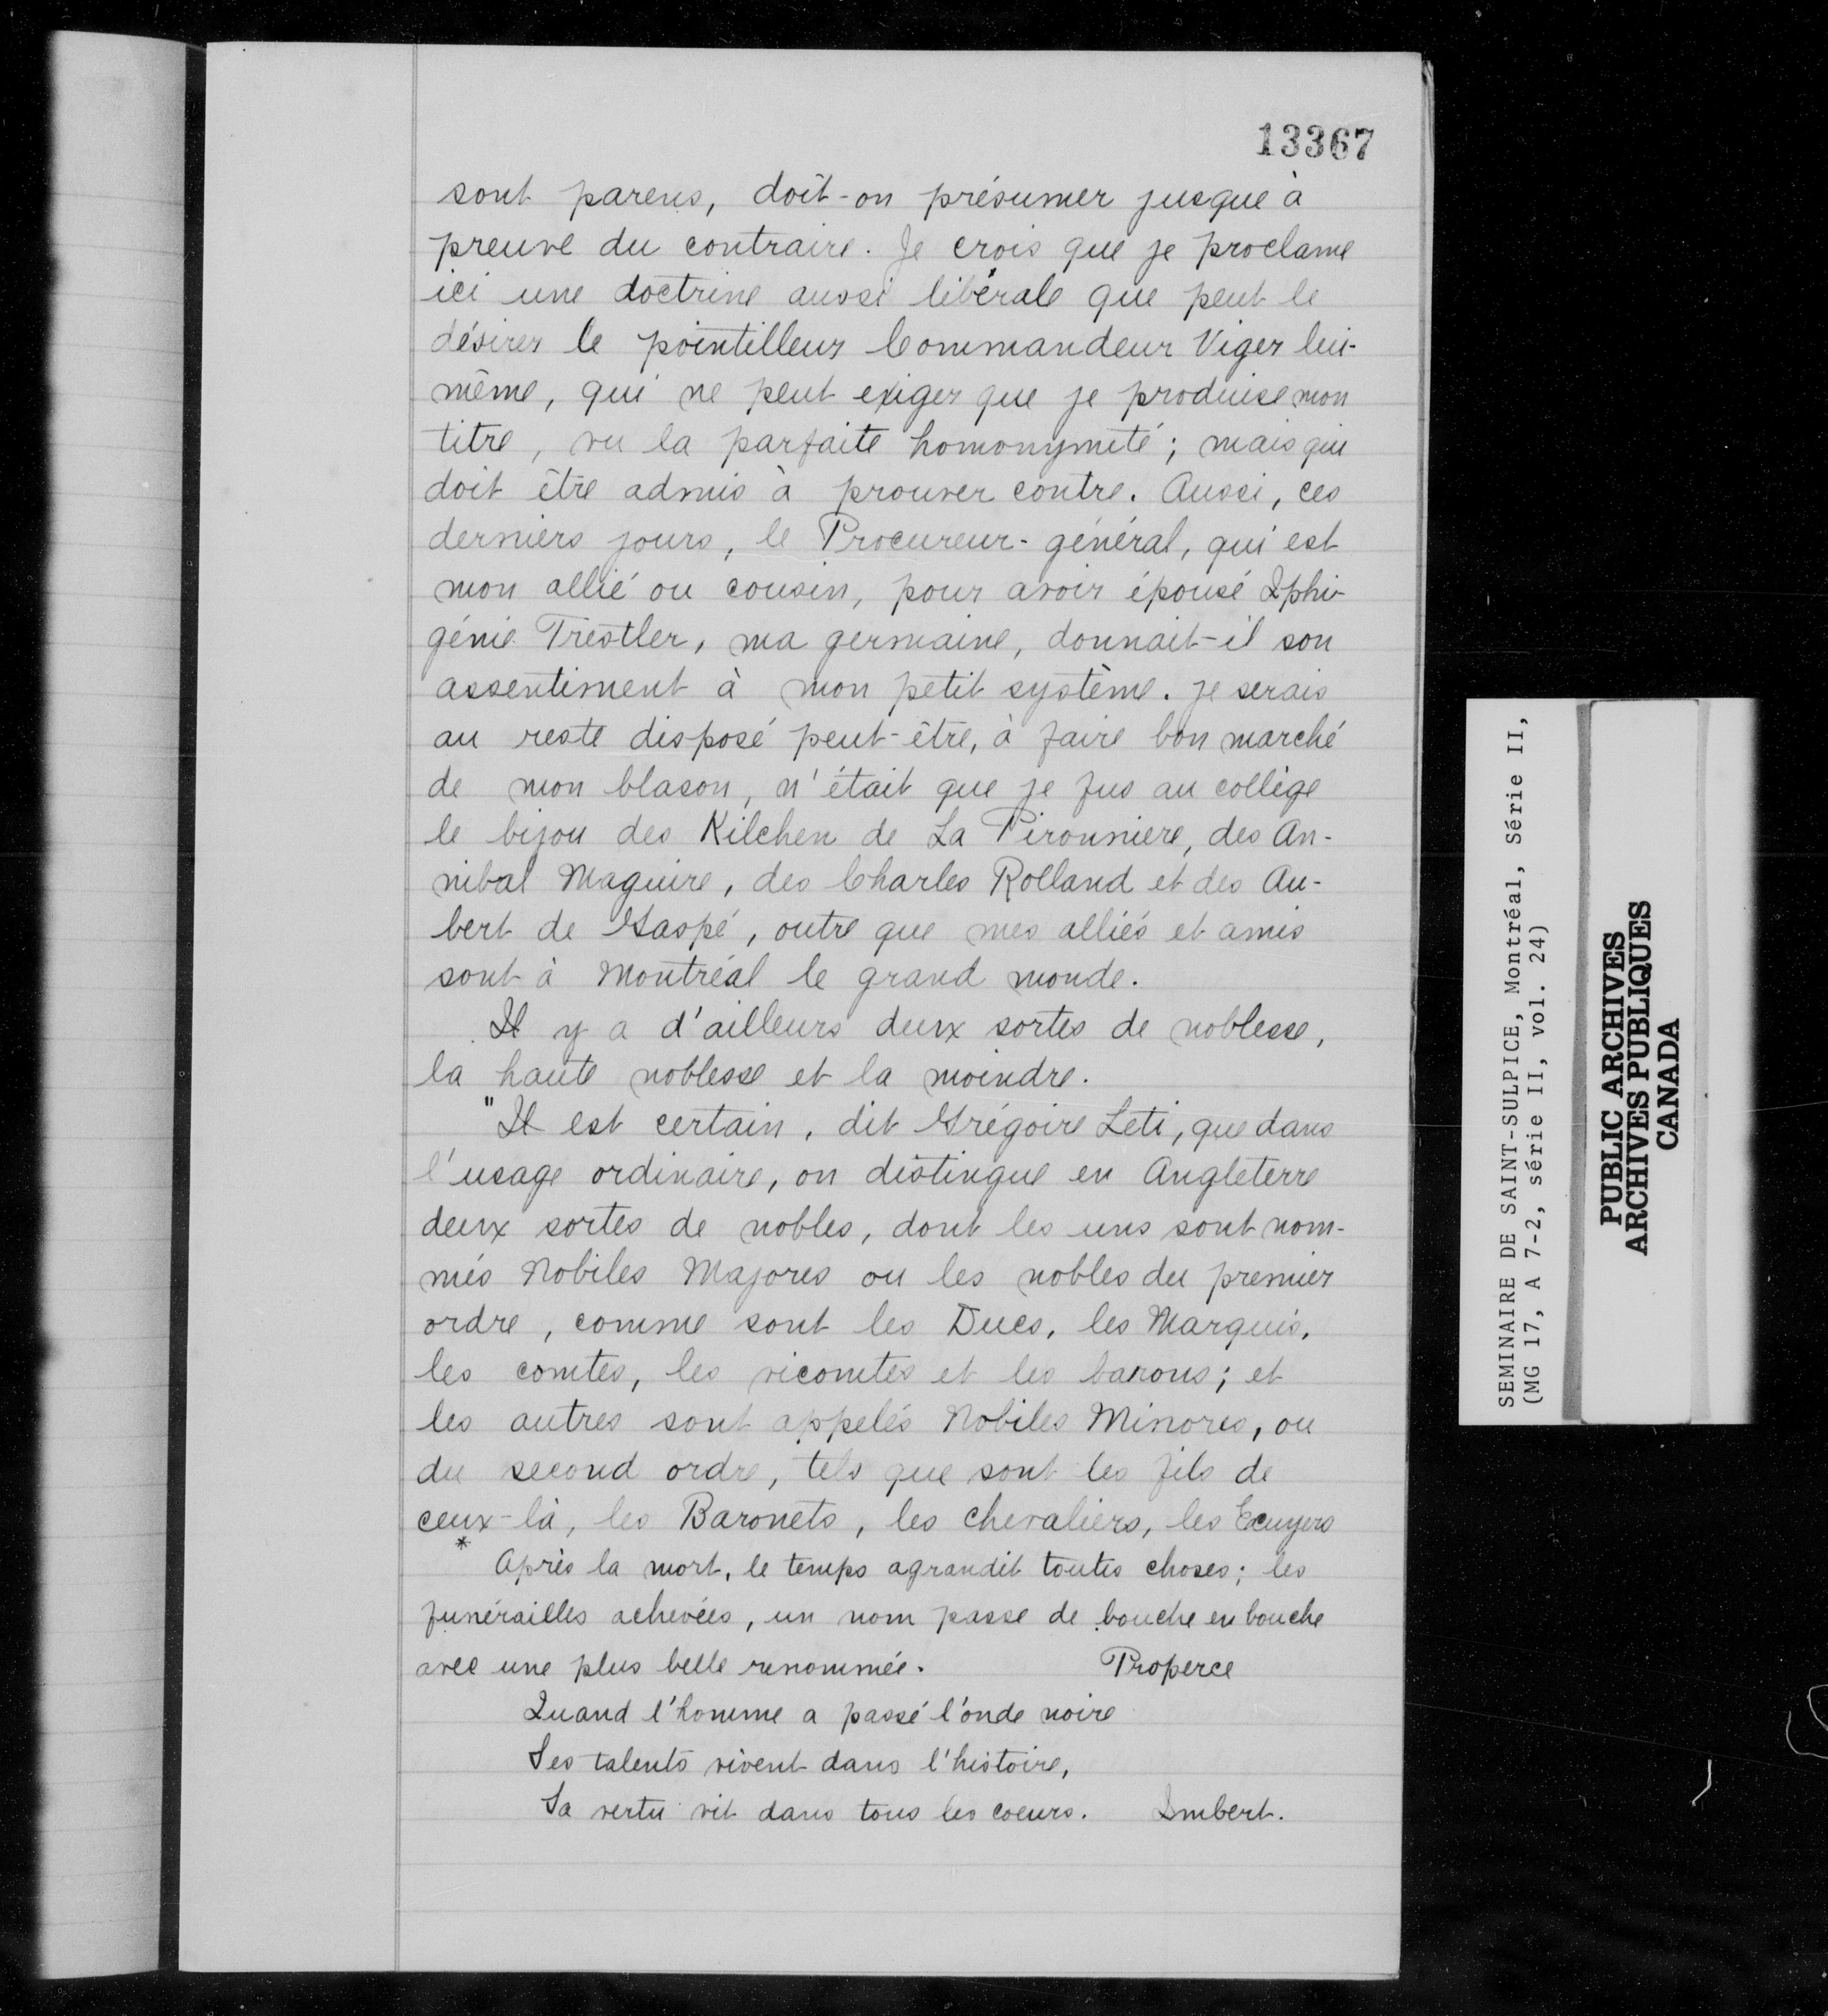 13367
sont parens, doit-on présumer jusque à
preuve du contraire. Je crois que je proclame
ici une doctrine aussi libérale que peut le
désirer le pointilleux Commandeur Viger lui-
même, qui ne peut exiger que je produise mon
titre, vu la parfaite homonymité; mais qui
doit être admis à prouver contre. Aussi, ces
derniers jours, le Procureur-général, qui est
mon allié ou cousin, pour avoir épousé Iphi-
génie Trestler, ma germaine, donnait-il son
assentiment à mon petit système. je serais
au reste disposé peut-être, à faire bon marché
de mon blason, n'était que je fus au collège
le bijou des Kilchen de La Pironniere, des An-
nibal Maguire, des Charles Rolland et des Au-
bert de Gaspé, outre que mes alliés et amis
sont à Montréal le grand monde.
Il y a d'ailleurs deux sortes de noblesse,
la haute noblesse et la moindre.
"Il est certain, dit Grégoire Leti, que dans
l'usage ordinaire, on distingue en Angleterre
deux sortes de nobles, dont les uns sont nom-
més Nobiles Majores ou les nobles du premier
ordre, comme sont les Ducs, les Marquis,
les comtes, les vicomtes et les barons; et
les autres sont appelés Nobiles Minores, ou
du second ordre, tels que sont les fils de
ceux-là, les Baronets, les chevaliers, les Ecuyers
* Après la mort, le temps agrandit toutes choses; les
funérailles achevées, un nom passe de bouche en bouche
avec une plus belle renommée. Properce
Quand l'homme a passé l'onde noire
Ses talents vivent dans l'histoire,
Sa vertu vit dans tous les coeurs. Imbert.
SEMINAIRE DE SAINT-SULPICE, Montréal, Série II,
(MG 17, A 7-2, série II, vol. 24)
PUBLIC ARCHIVES
ARCHIVES PUBLIQUES
CANADA